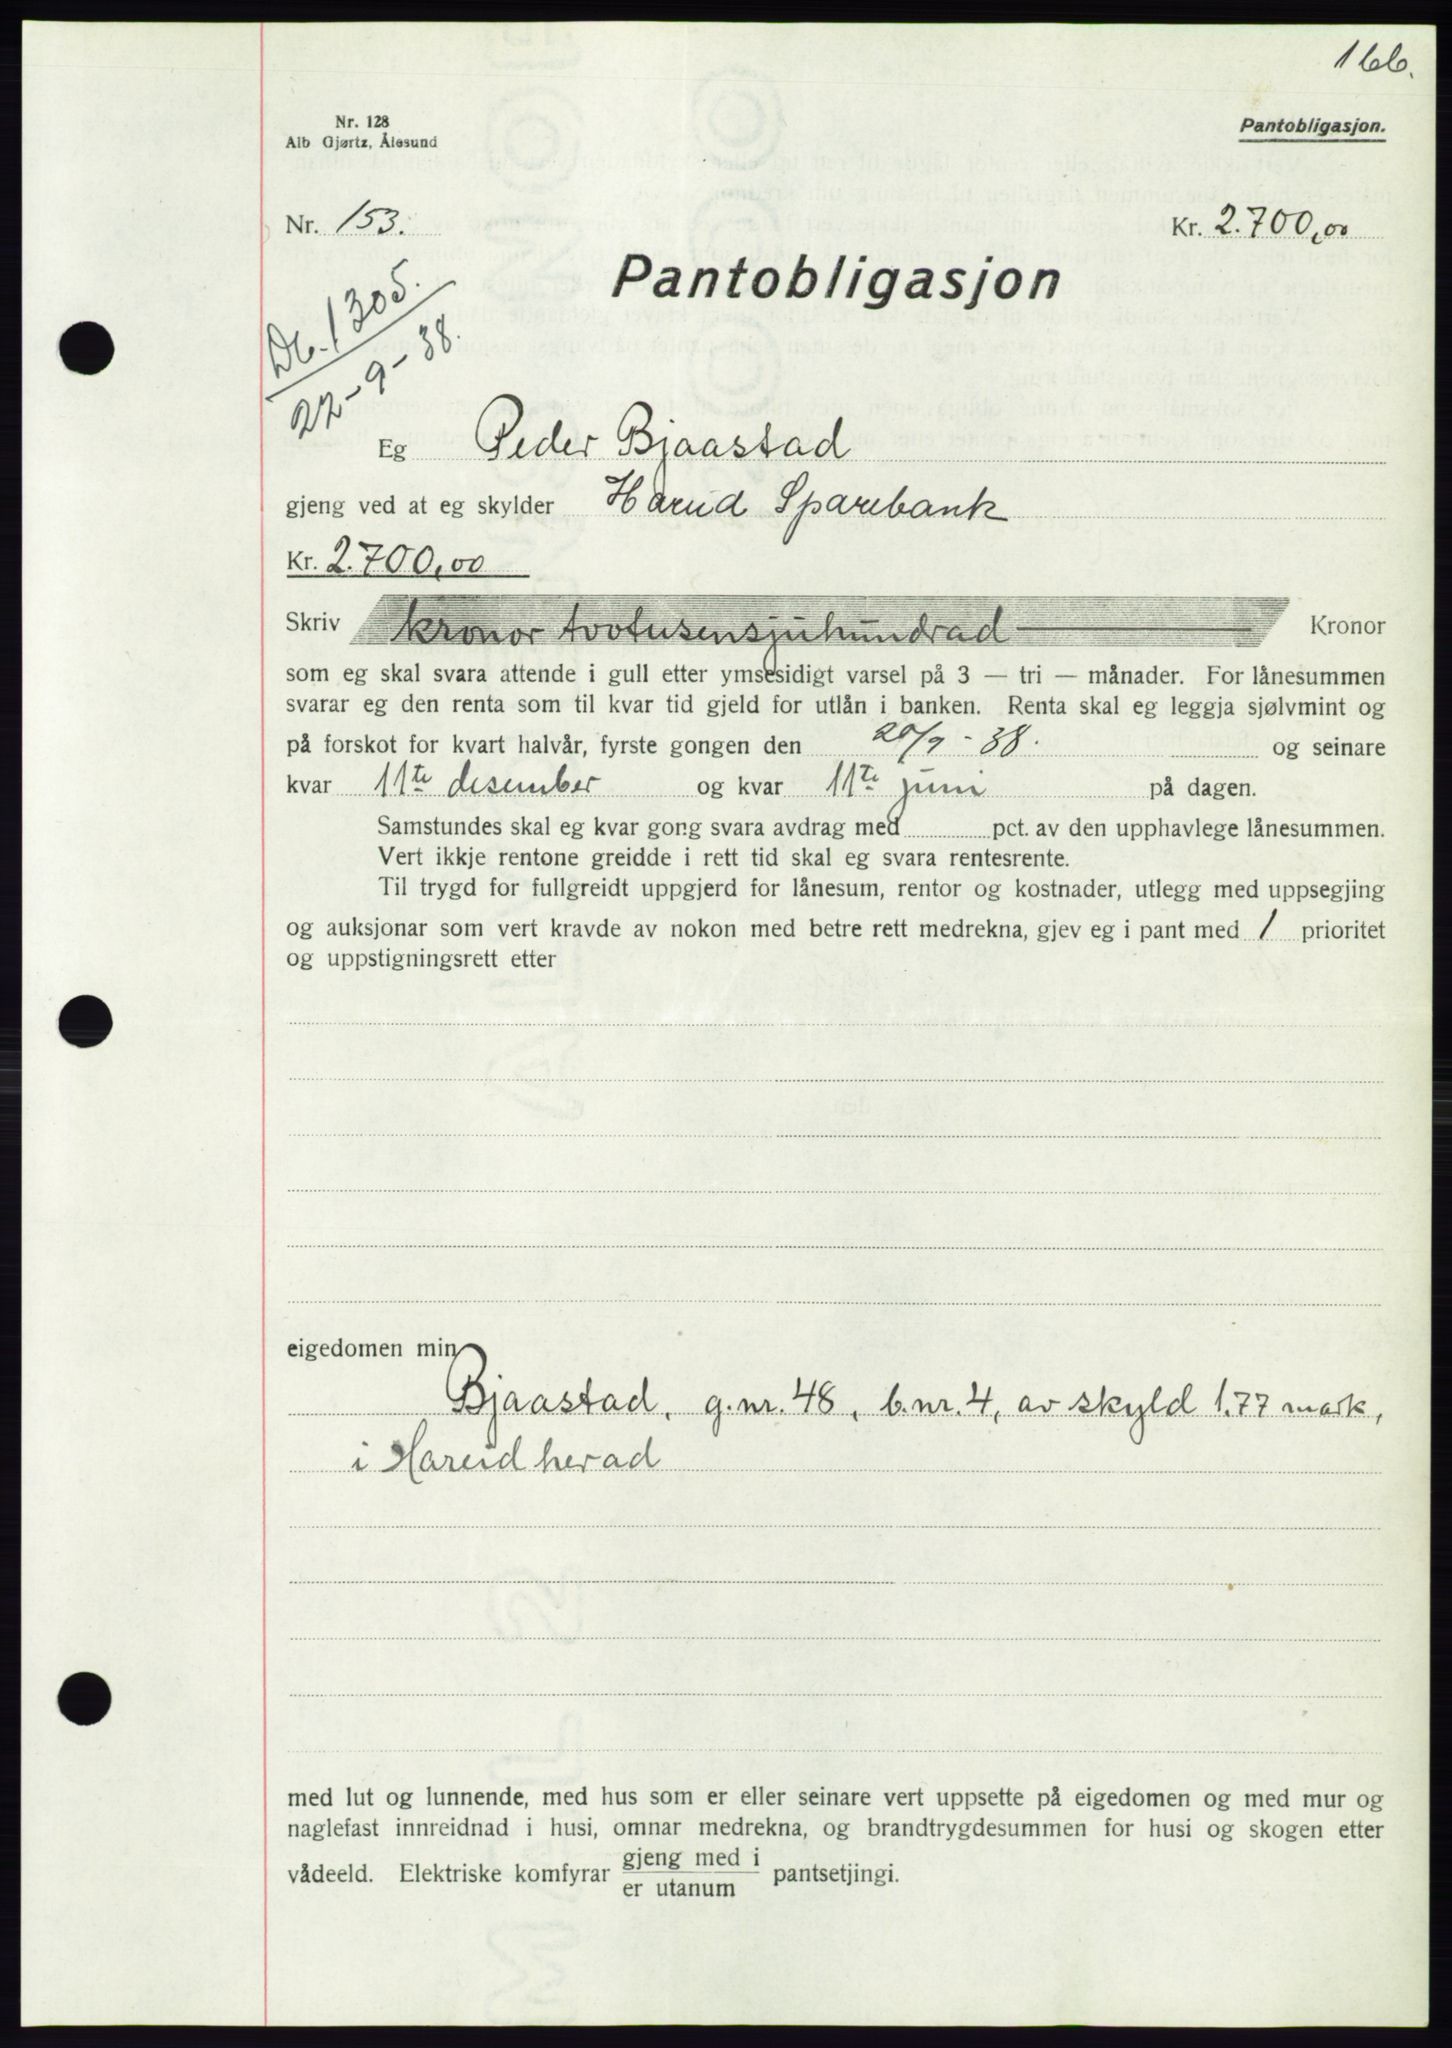 166.
Nr. 128
Alb Gjørtz, Ålesund
Pantobligasjon.
Nr. 153.
Kr. 2.700,00
Pantobligasjon
Db. 1305.
22-9-38.
Eg Peder Bjaastad
gjeng ved at eg skylder Hareid Sparebank
Kr. 2.700,00
Skriv kronor tvotusensjuhundrad Kronor
som eg skal svara attende i gull etter ymsesidigt varsel på 3 — tri — månader. For lånesummen
svarar eg den renta som til kvar tid gjeld for utlån i banken. Renta skal eg leggja sjølvmint og
på forskot for kvart halvår, fyrste gongen den 20/9-38. og seinare
kvar 11te desember og kvar 11te juni på dagen.
Samstundes skal eg kvar gong svara avdrag med pct. av den upphavlege lånesummen.
Vert ikkje rentone greidde i rett tid skal eg svara rentesrente.
Til trygd for fullgreidt uppgjerd for lånesum, rentor og kostnader, utlegg med uppsegjing
og auksjonar som vert kravde av nokon med betre rett medrekna, gjev eg i pant med 1 prioritet
og uppstigningsrett etter
eigedomen min
Bjaastad, g.nr. 48, b.nr. 4, av skyld 1.77 mark,
i Hareid herad
med lut og lunnende, med hus som er eller seinare vert uppsette på eigedomen og med mur og
naglefast innreidnad i husi, omnar medrekna, og brandtrygdesummen for husi og skogen etter
vådeeld. Elektriske komfyrar gjeng med i pantsetjingi.
er utanum